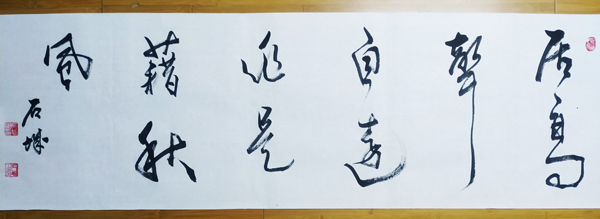 居高
聲
自遠
非是
藉秋
風
石城